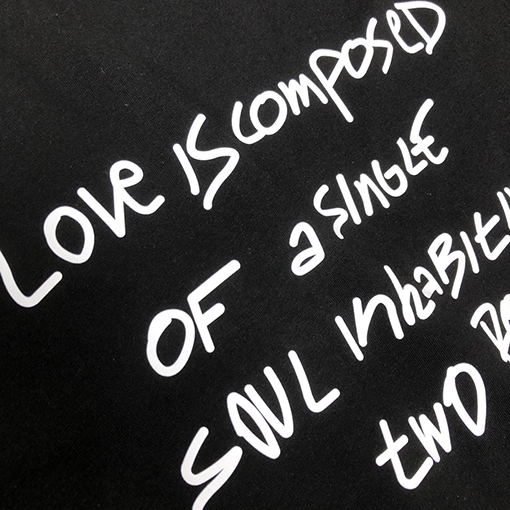 LOVE IS COMPOSED
OF a SINGLE
SOUL INhaBITI
TWO